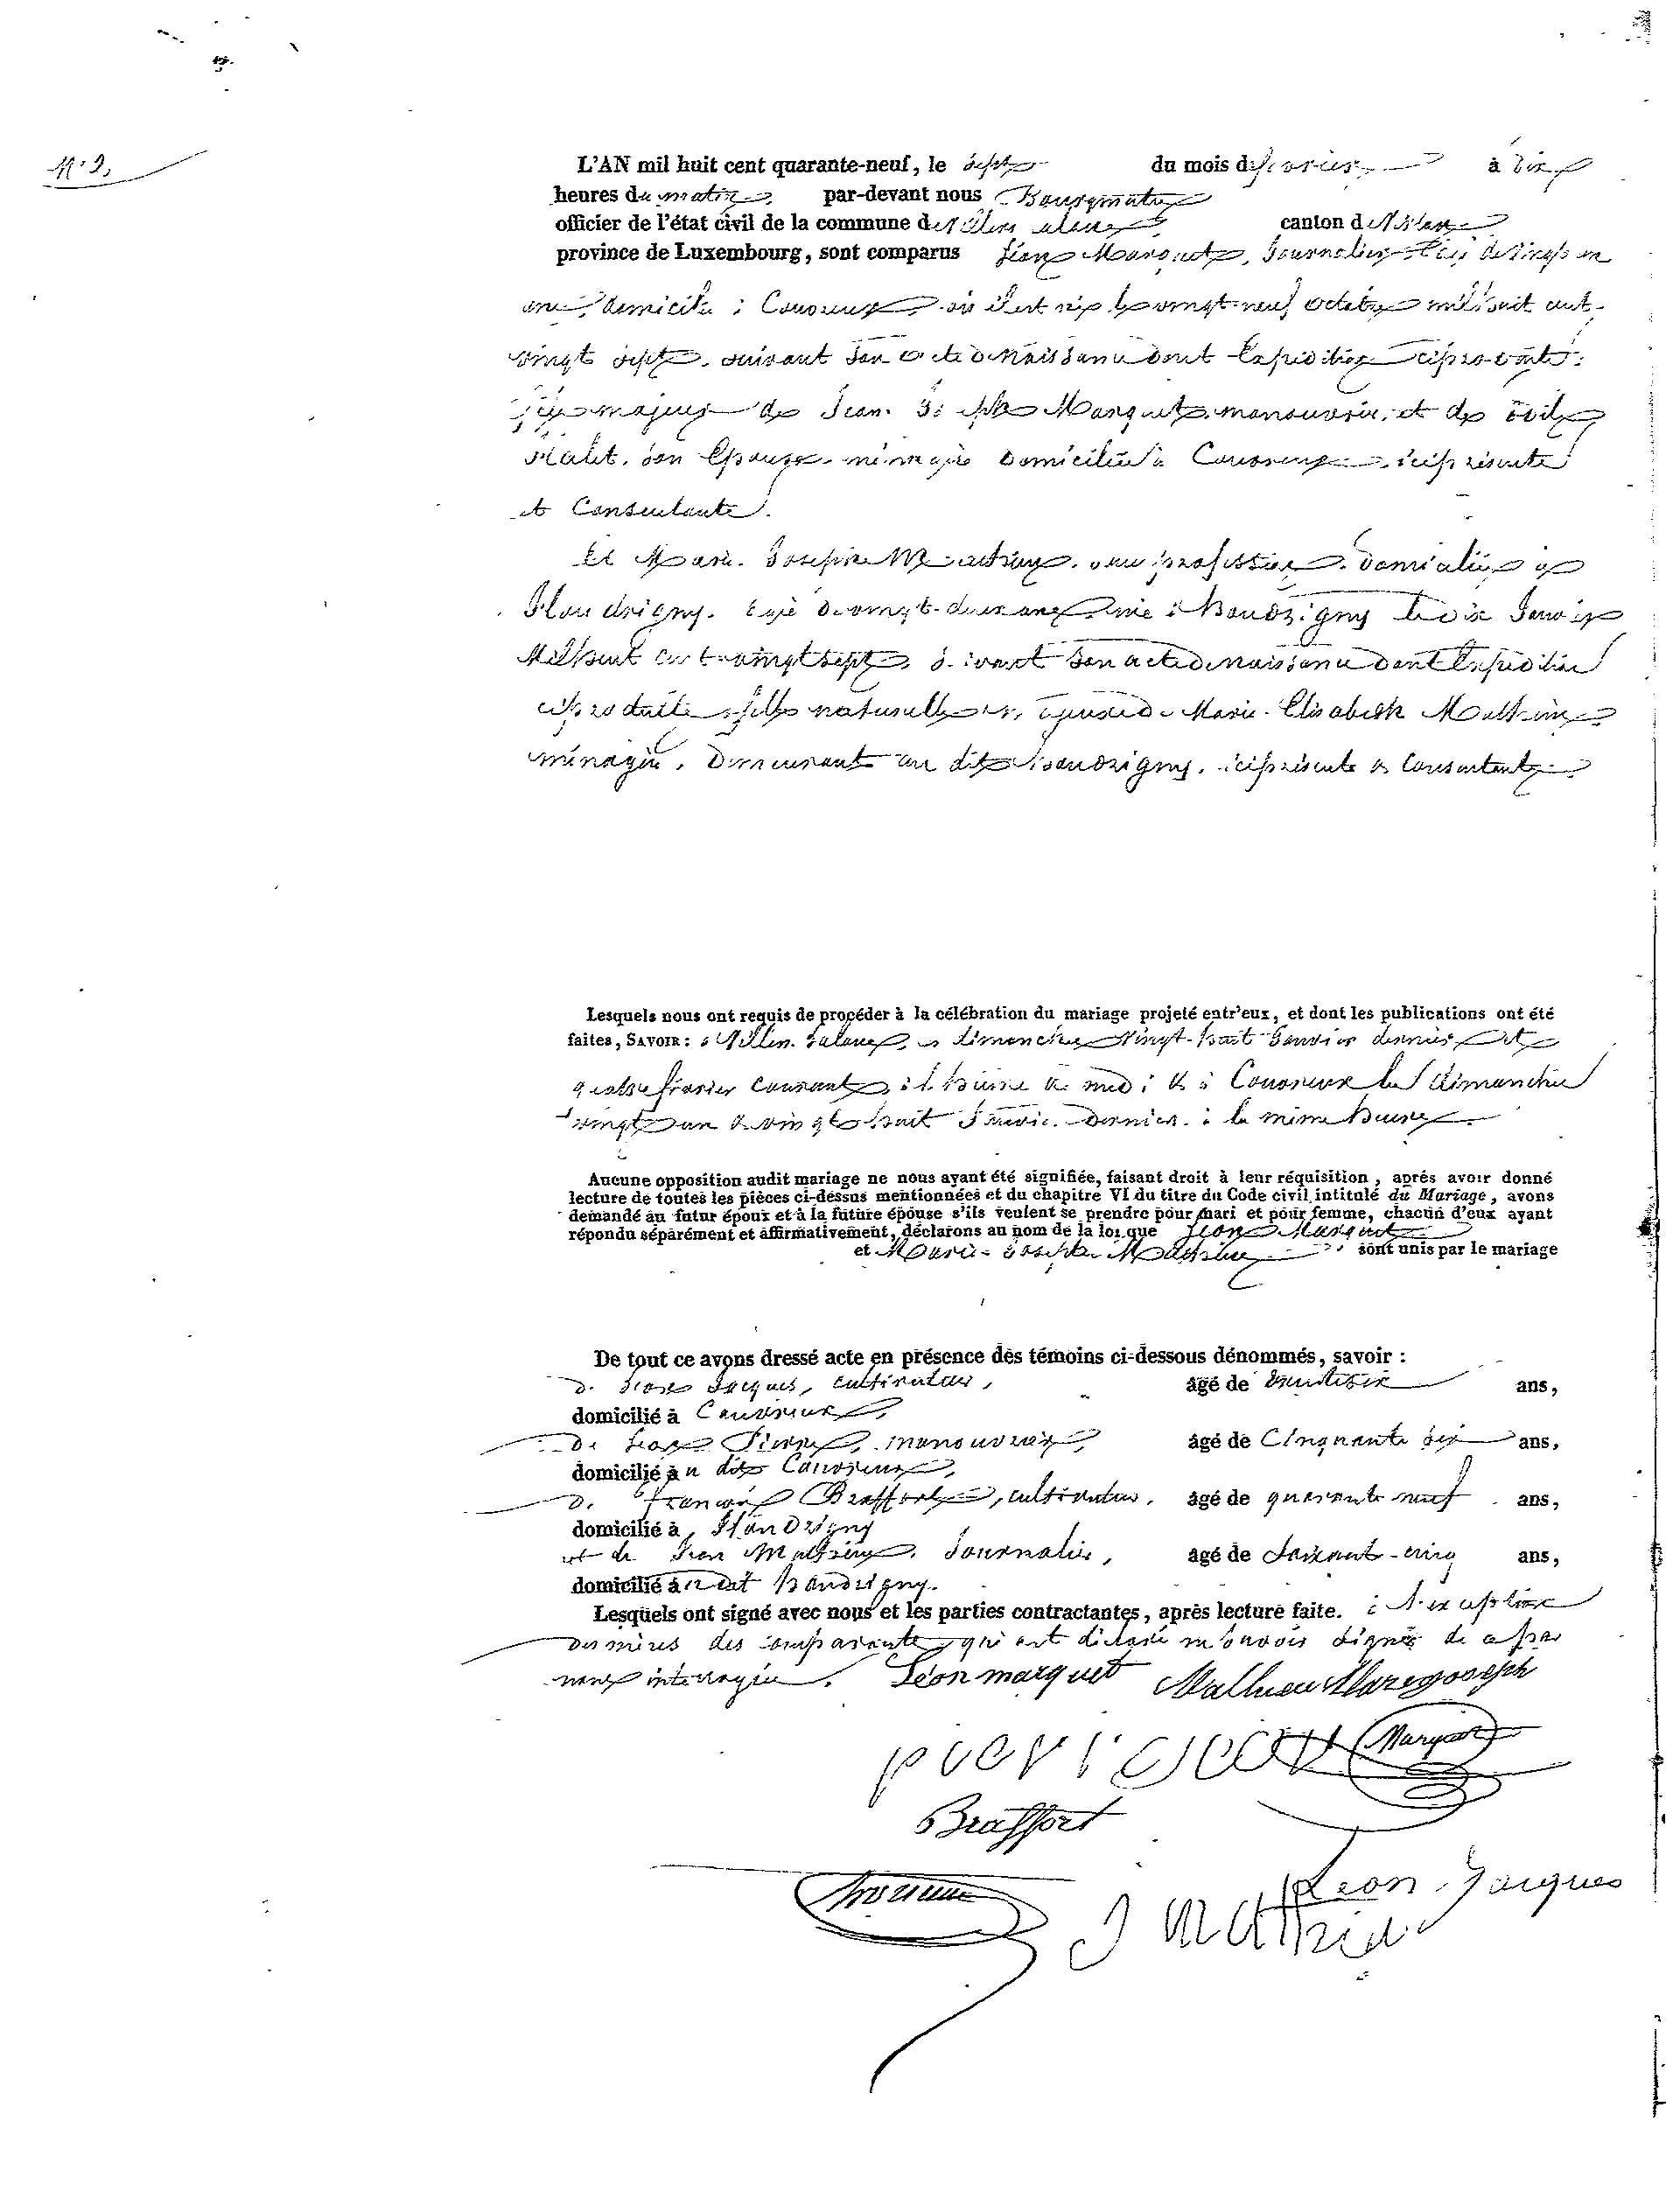 N° 2,
L'AN mil huit cent quarante-neuf, le sept du mois de février à dix
heures du matin par-devant nous Bourgmestre
officier de l'état civil de la commune de canton de
province de Luxembourg, sont comparus Léon Marquet, Journalier agé de vingt un
ans, domicilié à Couvreux, où il est né le vingt-neuf octobre mil huit cent-
vingt sept, suivant son acte de Naissance dont Expédition ci produite;
fils majeur de Jean Marquet, manouvrier, et de
son Epouse, ménagère domiciliée à Couvreux ici présente
et Consentante.
Et Marie Josephe Mathieu, sans profession, domiciliée à
Houdrigny, agé de vingt-deux ans, née à Houdrigny le dix Janvier
Mil huit cent vingt sept, suivant son acte de Naissance dont Expédition
ci produite, fille naturelle de Marie Elisabeth Mathieu
ménagère, demeurant au dit Houdrigny, ici présente et Consentante
Lesquels nous ont requis de procéder à la célébration du mariage projeté entr'eux, et dont les publications ont été
faites, SAVOIR: à dimanches Vingt-huit Janvier dernier et
quatre février courant, à l'heure de midi et à Couvreux les dimanches
vingt un et vingt huit Janvier dernier à la même heure
Aucune opposition audit mariage ne nous ayant été signifiée, faisant droit à leur réquisition, après avoir donné
lecture de toutes les pièces ci-dessus mentionnées et du chapitre VI du titre du Code civil intitulé du Mariage, avons
demandé au futur époux et à la future épouse s'ils veulent se prendre pour mari et pour femme, chacun d'eux ayant
répondu séparément et affirmativement, déclarons au nom de la loi que Léon Marquet
et Marie Josephe Mathieu sont unis par le mariage
De tout ce avons dressé acte en présence des témoins ci-dessous dénommés, savoir:
de Léon Jacques, cultivateur, âgé de ans,
domicilié à Couvreux,
de Jean Pierre, manouvrier, âgé de Cinquante six ans,
domicilié à u dit Couvreux,
de François Braffort, cultivateur, âgé de quarante neuf ans,
domicilié à Houdrigny
et de Jean Mathieu, Journalier, âgé de soixante-cinq ans,
domicilié à u dit Houdrigny.
Lesquels ont signé avec nous et les parties contractantes, après lecture faite. à l'exception
des mères des comparants, qui ont déclaré ne savoir signer de ce par
nous interpellées. Léon marquet Mathieu Mariejoseph
pierre jean Marquet
Braffort
Léon Jacques
J mathieu